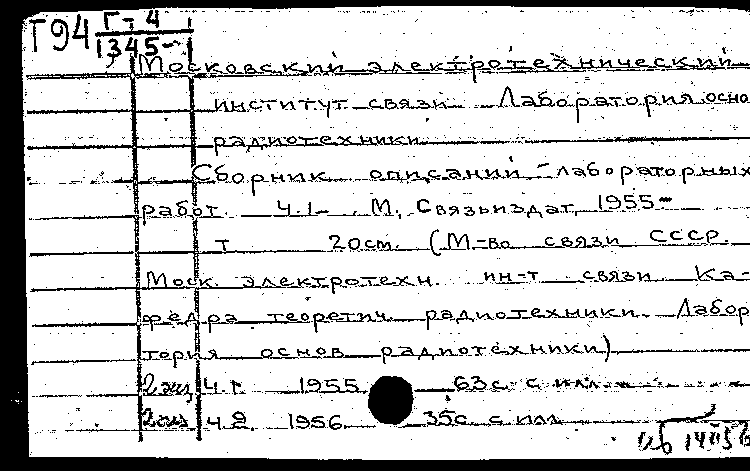 Т94 Г-4
1345-
Московский электротехнический
институт связи Лаборатория осно
радиотехники
Сборник описаний лабораторных
работ. Ч.1- . М, Связьиздат, 1955-
т 20см. (М-во связи СССР.
Моск. электротехн. ин-т связи Ка-
федра теоретич. радиотехники. Лабор
тория основ радиотехники)
2 экз ч.1 1955 63с. с илл.
2 экз ч.2 1956 35с. с илл